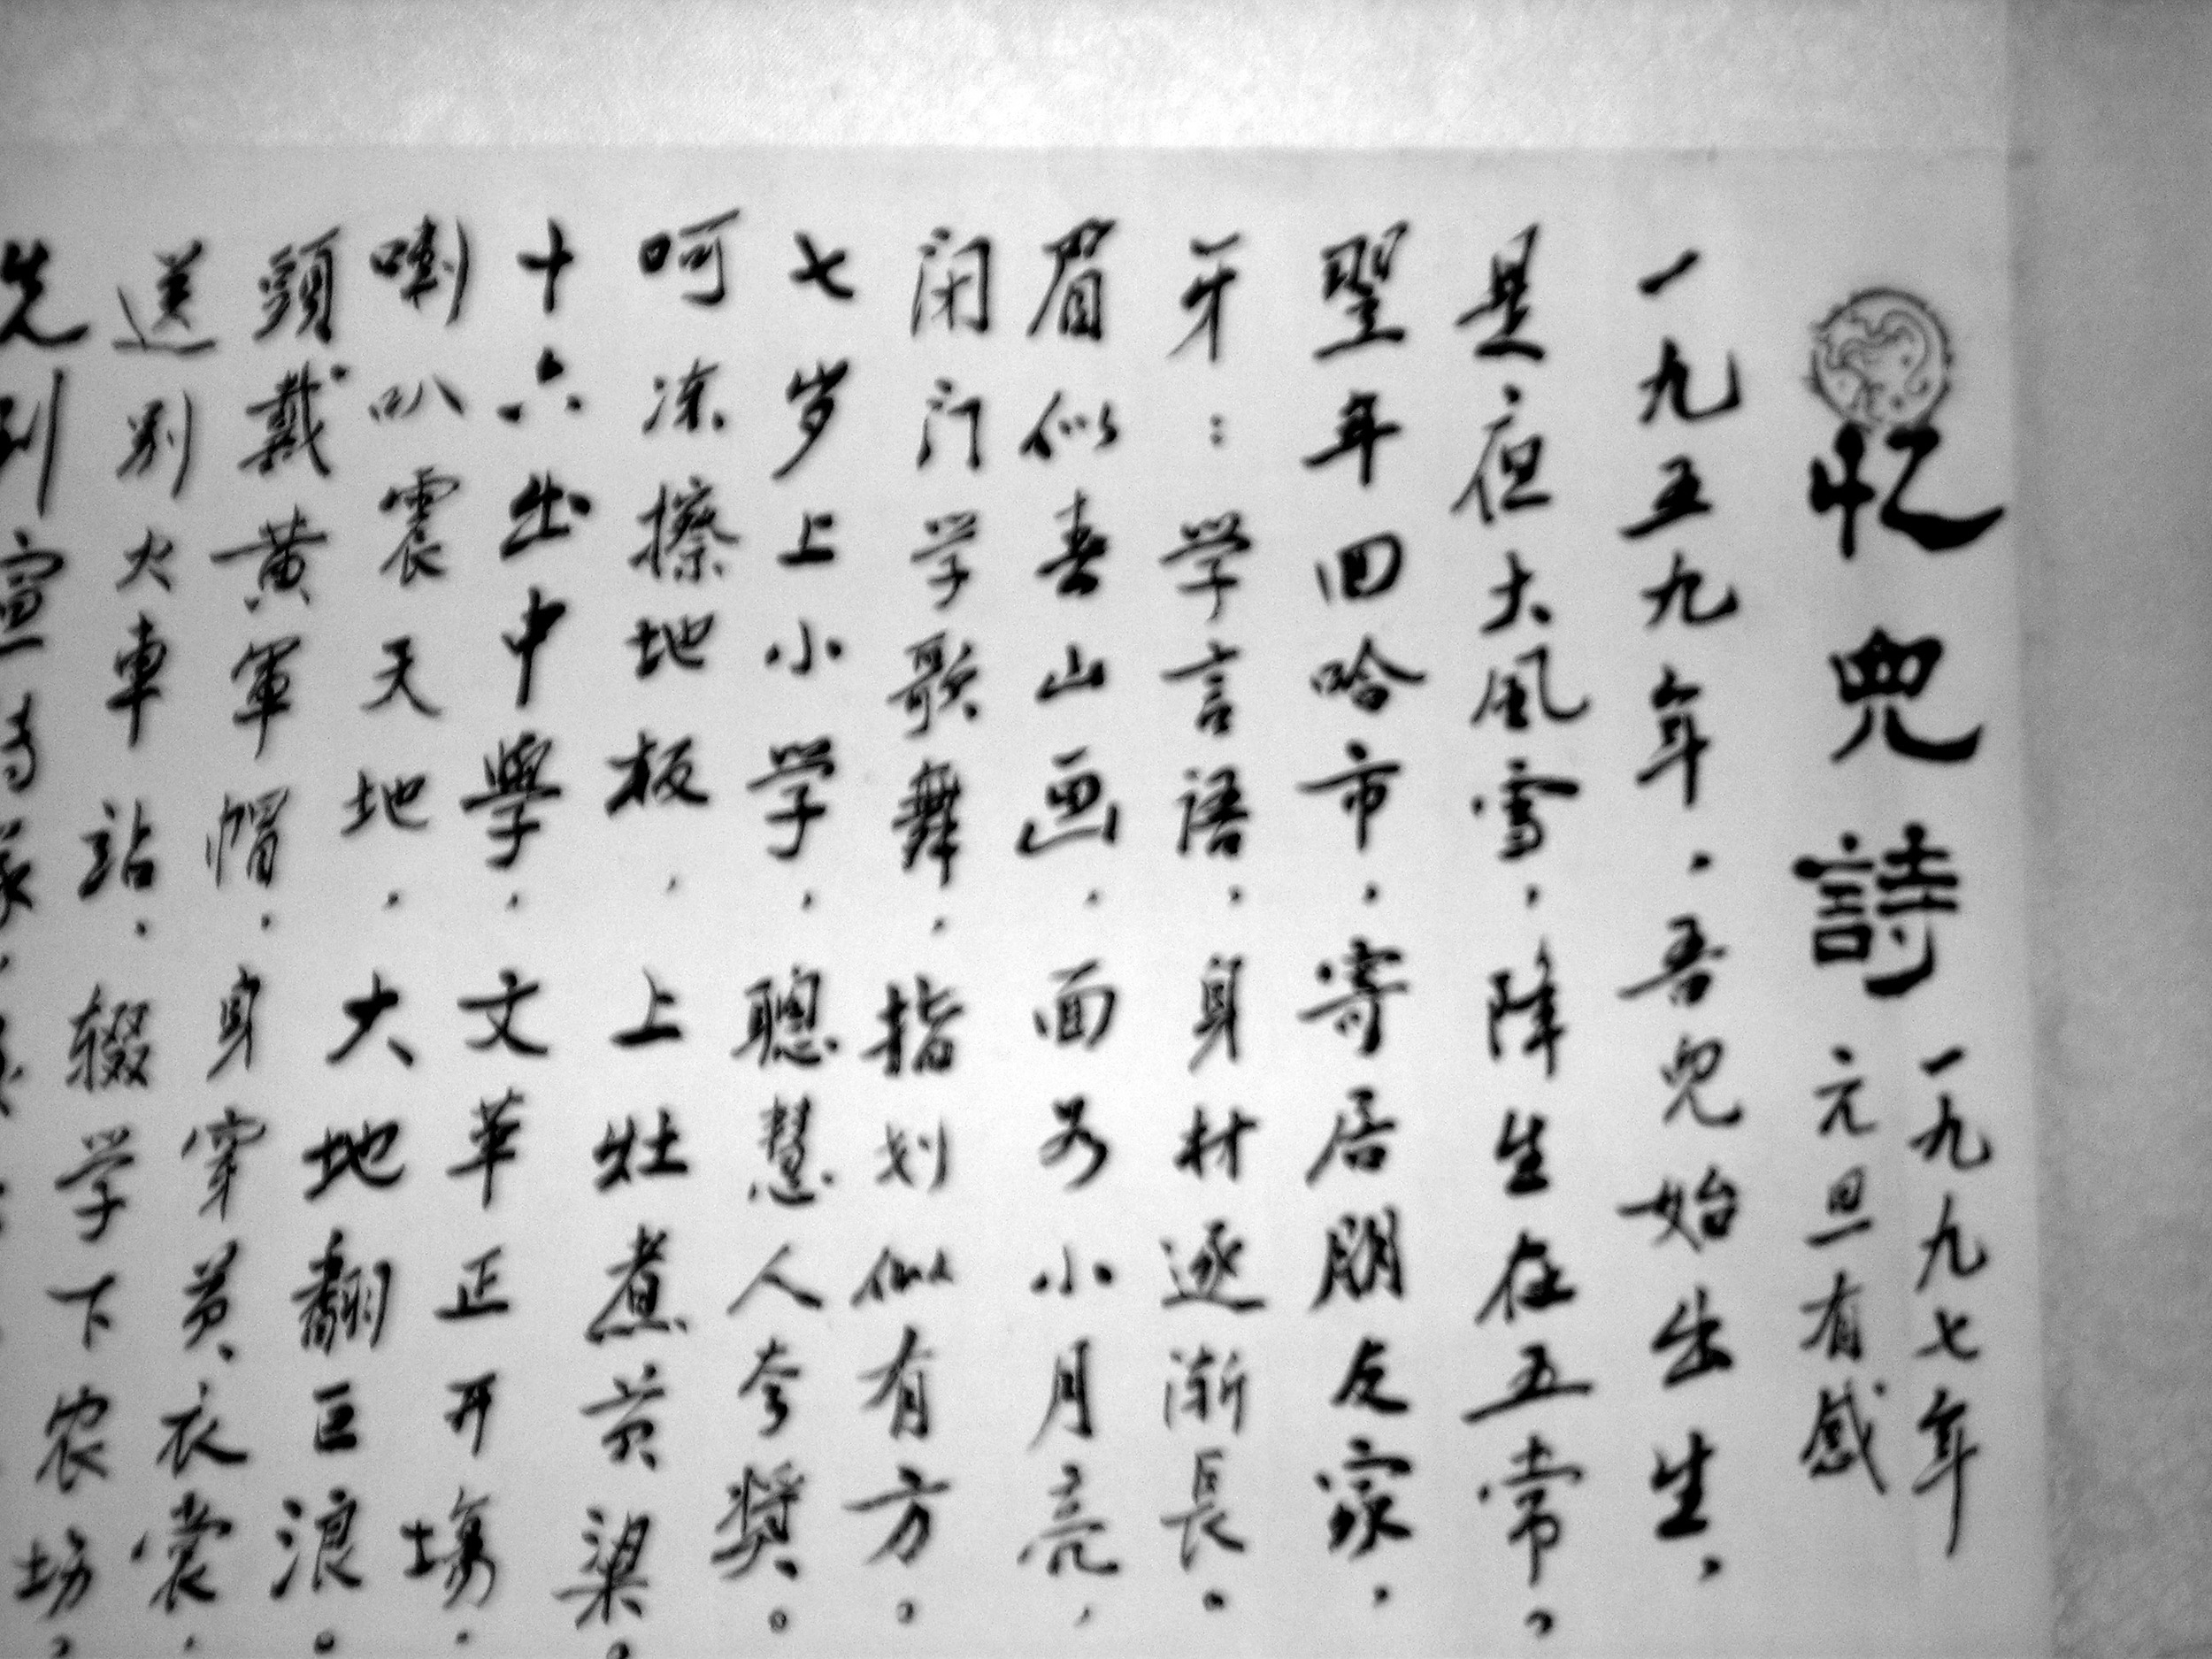 忆兒詩
一九九七年
元旦有感
一九五九年，吾兒始出生，
是夜大風雪，降生在五常。
聖年回哈市，寄居朋友家，
牙：学言語，身材逐漸長。
眉似春山画，面如小月亮，
闭门学歌舞，指划似有方。
七岁上小学，聰慧人夸奬。
呵冻擦地板，上灶煮黄粱。
十六出中學，文華正开塲，
喇叭震天地，大地翻巨浪。
頭戴黄軍帽，身穿黄衣裳，
送别火車站，辍学下农坊，
先到宣